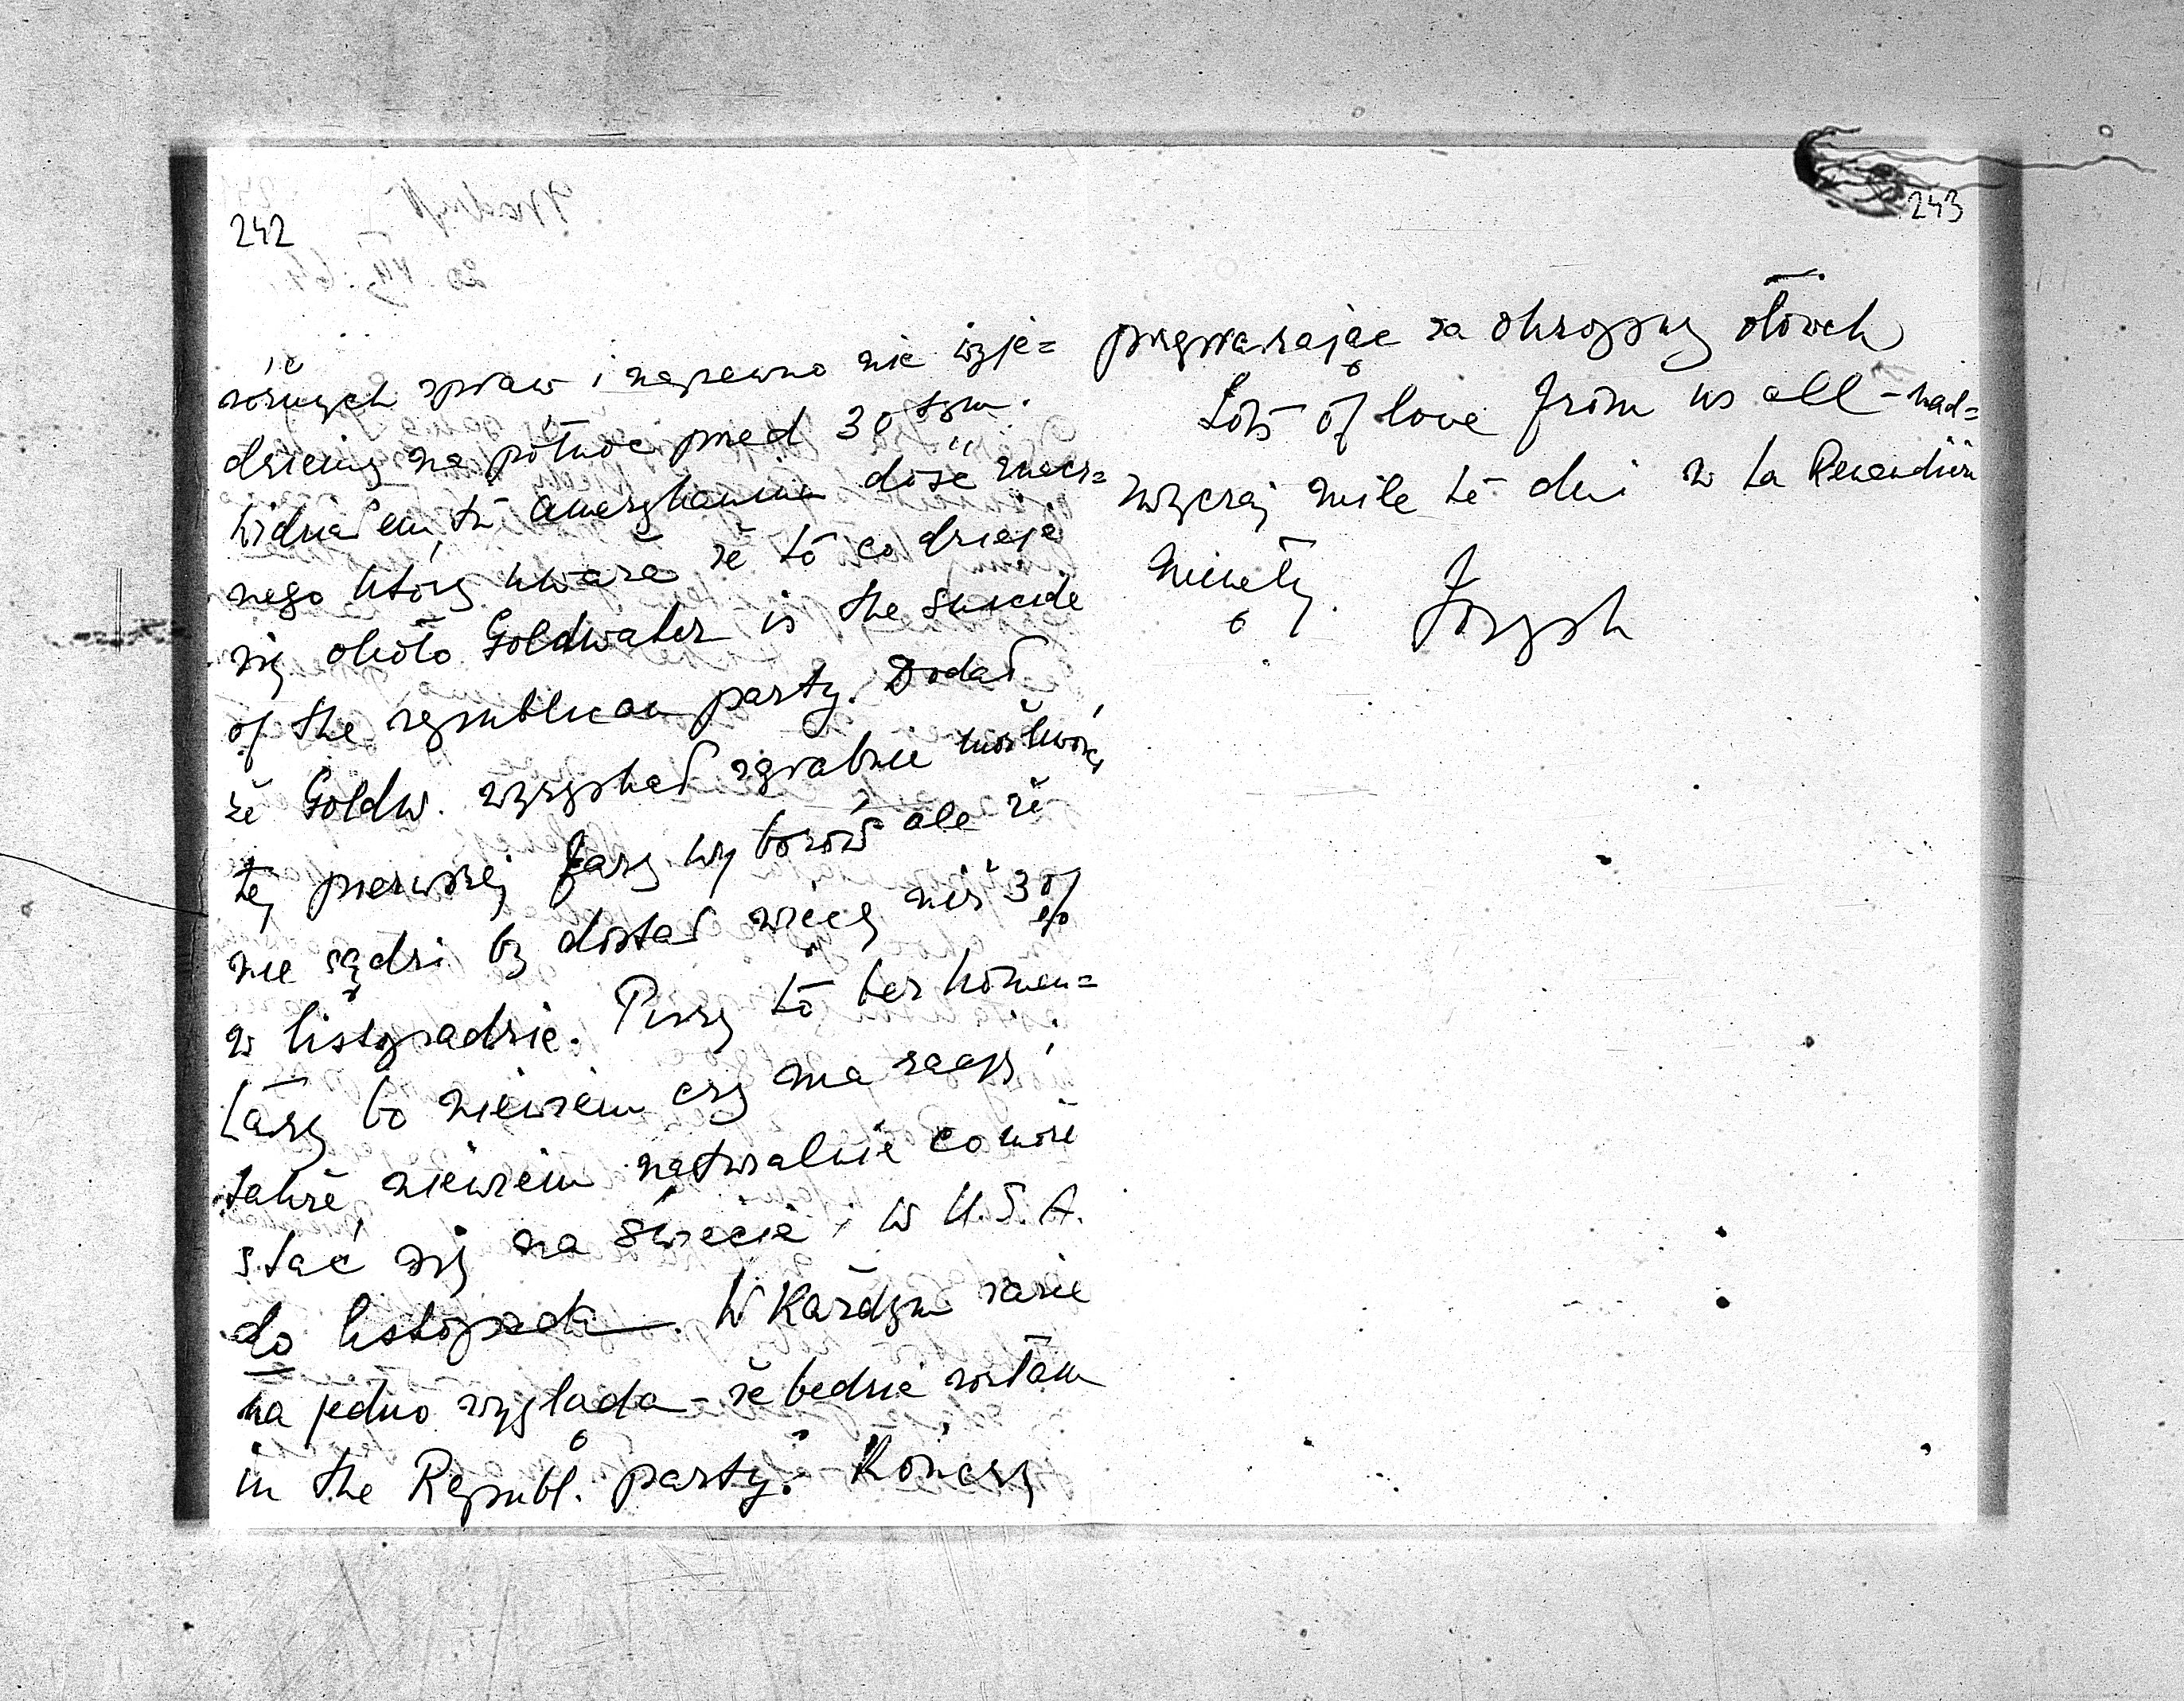 242
różnych spraw i napewno nie wyje=
dziemy na północ pred 30 tym.
Widziałem tu amerykanina dość znacz=
nego który uważa że to co dzieje
się około Goldwater is the suicide
of the republican party. Dodał
że Goldw. wyzyskał zgrabnie możliwość
tej pierwszej fazy wyborów ale że
nie sądzi by dostał więcej niż 30%
w listopadzie. Piszę to bez komen=
tarzy bo niewiem czy ma racje i
także niewiem naturalnie co może
stać się na świecie i w U.S.A.
do listopada. W Każdym razie
na jedno wygląda - że będzie rozłam
in the Republ. party. Kończę
243
przepraszając za okropny ołówek
Lots of love from us all - nad=
zwyczaj miłe te dni w La
minęły.
Józych